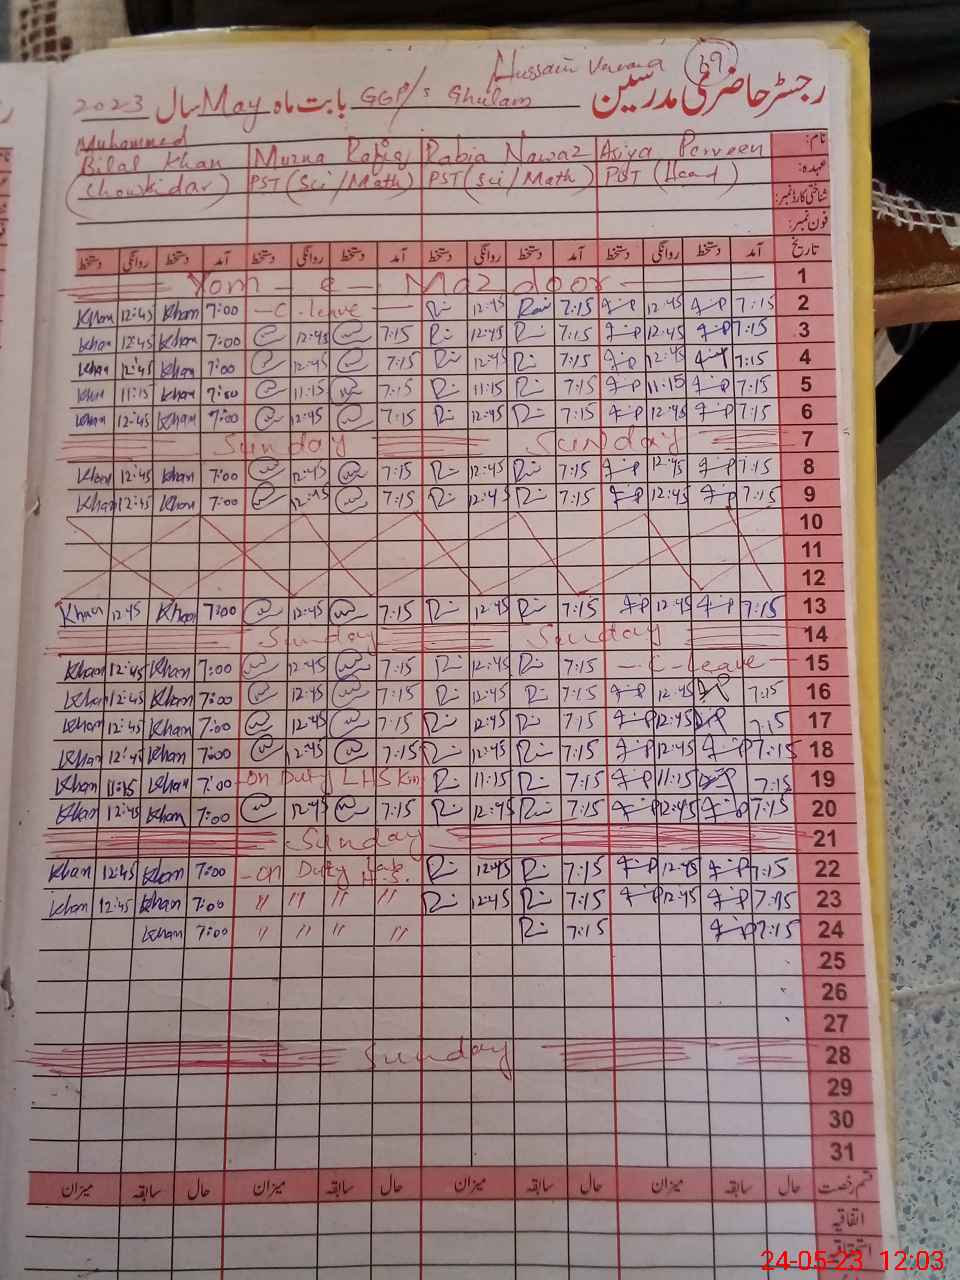 Hussain Varana 69
رجسٹر حاضری مدرسین GGP/s Ghulam بابت ماہ May سال 2023
نام: Asiya Perveen Rabia Nawaz Murna Rafiq Muhammed Bilal Khan
عہدہ: PST (Head) PST (Sci/Math) PST (Sci/Math) (Chowkidar)
شناختی کارڈ نمبر:
فون نمبر:
تاریخ آمد دستخط روانگی دستخط آمد دستخط روانگی دستخط آمد دستخط روانگی دستخط آمد دستخط روانگی دستخط
Yom - e - Mazdoor 1
Khan 12:45 Khan 7:00 - C - leave - 12:45 7:15 12:45 7:15 2
Khan 12:45 Khan 7:00 12:45 7:15 12:45 7:15 12:45 7:15 3
Khan 12:45 Khan 7:00 12:45 7:15 12:45 7:15 12:45 7:15 4
Khan 11:15 Khan 7:00 11:15 7:15 11:15 7:15 11:15 7:15 5
Khan 12:45 Khan 7:00 12:45 7:15 12:45 7:15 12:45 7:15 6
Sunday Sunday 7
Khan 12:45 Khan 7:00 12:45 7:15 12:45 7:15 12:45 7:15 8
Khan 12:45 Khan 7:00 12:45 7:15 12:45 7:15 12:45 7:15 9
10
11
12
Khan 12:45 Khan 7:00 12:45 7:15 12:45 7:15 12:45 7:15 13
Sunday Sunday 14
Khan 12:45 Khan 7:00 12:45 7:15 12:45 7:15 - C - leave - 15
Khan 12:45 Khan 7:00 12:45 7:15 12:45 7:15 12:45 7:15 16
Khan 12:45 Khan 7:00 12:45 7:15 12:45 7:15 12:45 7:15 17
Khan 12:45 Khan 7:00 12:45 7:15 12:45 7:15 12:45 7:15 18
Khan 11:15 Khan 7:00 - on Duty LHS 11:15 7:15 11:15 7:15 19
Khan 12:45 Khan 7:00 12:45 7:15 12:45 7:15 12:45 7:15 20
Sunday 21
Khan 12:45 Khan 7:00 - on Duty H.S. 12:45 7:15 12:45 7:15 22
Khan 12:45 Khan 7:00 " " " " 12:45 7:15 12:45 7:15 23
Khan 7:00 " " " " 7:15 7:15 24
25
26
27
Sunday 28
29
30
31
قسم رخصت حال سابقہ میزان حال سابقہ میزان حال سابقہ میزان حال سابقہ میزان
اتفاقیہ
استحقاقیہ
24-05-23 12:03